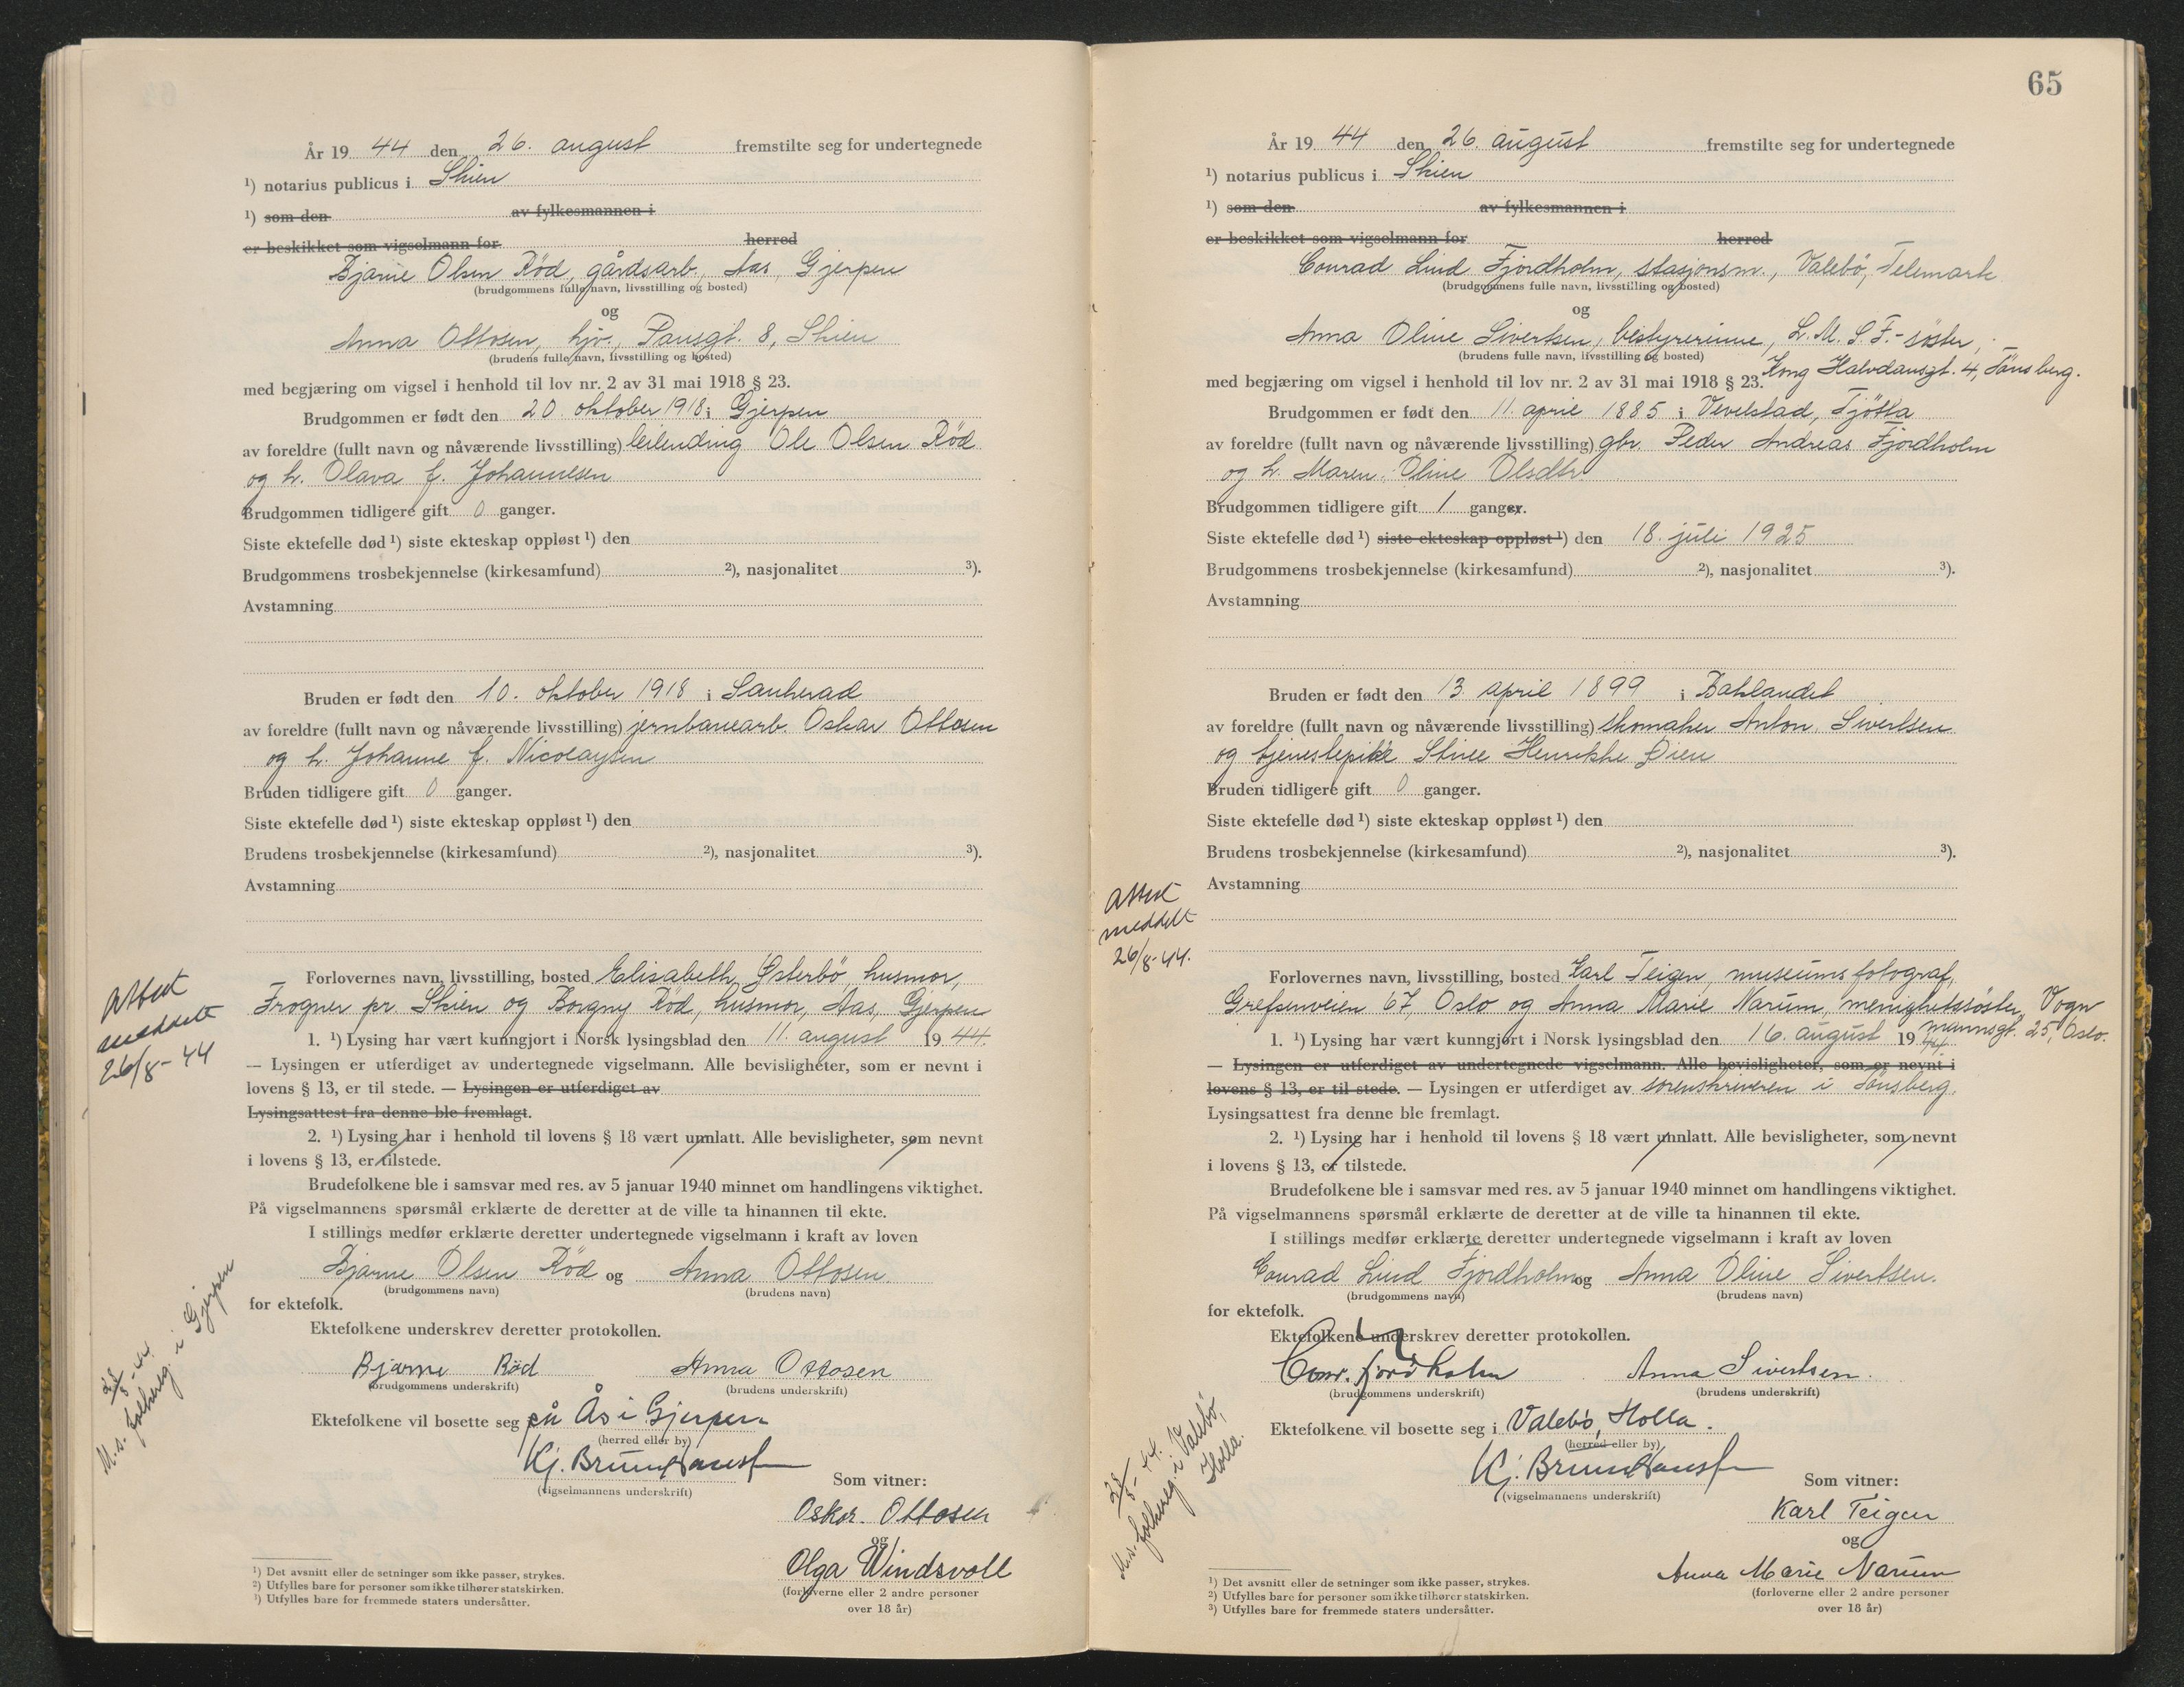 År 19 44 den 26. august fremstilte seg for undertegnede
¹) notarius publicus i Skien
¹) som den av fylkesmannen i
er beskikket som vigselmann for herred
Bjarne Olsen Röd, gårdsarb., Aas, Gjerpen
(brudgommens fulle navn, livsstilling og bosted)
og
Anna Ottosen, hjv., Pansgt. 8, Skien
(brudens fulle navn, livsstilling og bosted)
med begjæring om vigsel i henhold til lov nr. 2 av 31 mai 1918 § 23.
Brudgommen er født den 20. oktober 1918 i Gjerpen
av foreldre (fullt navn og nåværende livsstilling) leilending Ole Olsen Röd
og h. Olava f. Johannesen
Brudgommen tidligere gift 0 ganger.
Siste ektefelle død ¹) siste ekteskap oppløst ¹) den
Brudgommens trosbekjennelse (kirkesamfund) ²), nasjonalitet ³).
Avstamning
Bruden er født den 10. oktober 1918 i Sauherad
av foreldre (fullt navn og nåværende livsstilling) jernbanearb. Oskar Ottosen
og h. Johanne f. Nicolaysen
Bruden tidligere gift 0 ganger.
Siste ektefelle død ¹) siste ekteskap oppløst ¹) den
Brudens trosbekjennelse (kirkesamfund) ²), nasjonalitet ³).
Avstamning
Forlovernes navn, livsstilling, bosted Elisabeth Østerbö, husmor,
Frogner pr. Skien og Borgny Röd, husmor, Aas, Gjerpen
1. ¹) Lysing har vært kunngjort i Norsk lysingsblad den 11. august 19 44.
— Lysingen er utferdiget av undertegnede vigselmann. Alle bevisligheter, som er nevnt i
lovens § 13, er til stede. — Lysingen er utferdiget av
Lysingsattest fra denne ble fremlagt.
2. ¹) Lysing har i henhold til lovens § 18 vært unnlatt. Alle bevisligheter, som nevnt
i lovens § 13, er tilstede.
Brudefolkene ble i samsvar med res. av 5 januar 1940 minnet om handlingens viktighet.
På vigselmannens spørsmål erklærte de deretter at de ville ta hinannen til ekte.
I stillings medfør erklærte deretter undertegnede vigselmann i kraft av loven
Bjarne Olsen Röd og Anna Ottosen.
(brudgommens navn) (brudens navn)
for ektefolk.
Ektefolkene underskrev deretter protokollen.
Bjarne Röd Anna Ottosen
(brudgommens underskrift) (brudens underskrift)
Ektefolkene vil bosette seg på Ås i Gjerpen
(herred eller by)
Kj. Bruun Hansen
(vigselmannens underskrift)
Som vitner:
Oskar. Ottosen
og
Olga Windsvoll
(forloverne eller 2 andre personer
over 18 år)
¹) Det avsnitt eller de setninger som ikke passer, strykes.
²) Utfylles bare for personer som ikke tilhører statskirken.
³) Utfylles bare for fremmede staters undersåtter.
Attest
meddelt
26/8-44
28/8-44.
M.s. folkereg. i Gjerpen
65
År 19 44 den 26. august fremstilte seg for undertegnede
¹) notarius publicus i Skien
¹) som den av fylkesmannen i
er beskikket som vigselmann for herred
Conrad Lind Fjordholm, stasjonsm., Valebö, Telemark
(brudgommens fulle navn, livsstilling og bosted)
og
Anna Oline Sivertsen, bestyrerinne, L.M.S.F.-söster,
(brudens fulle navn, livsstilling og bosted)
Kong Halvdansgt. 4, Tönsberg.
med begjæring om vigsel i henhold til lov nr. 2 av 31 mai 1918 § 23.
Brudgommen er født den 11. april 1885 i Vevelstad, Tjötta
av foreldre (fullt navn og nåværende livsstilling) gbr. Peder Andreas Fjordholm
og h. Maren Oline Olsdtr.
Brudgommen tidligere gift 1 ganger.
Siste ektefelle død ¹) siste ekteskap oppløst ¹) den 18. juli 1925
Brudgommens trosbekjennelse (kirkesamfund) ²), nasjonalitet ³).
Avstamning
Bruden er født den 13 april 1899 i Baklandet
av foreldre (fullt navn og nåværende livsstilling) skomaker Anton Sivertsen
og tjenestepike Stine Henrikke Øien
Bruden tidligere gift 0 ganger.
Siste ektefelle død ¹) siste ekteskap oppløst ¹) den
Brudens trosbekjennelse (kirkesamfund) ²), nasjonalitet ³).
Avstamning
Forlovernes navn, livsstilling, bosted Karl Teigen, museumsfotograf,
Grefsenveien 67, Oslo og Anna Marie Narum, menighetssöster, Vogn
mannsgt. 25, Oslo.
1. ¹) Lysing har vært kunngjort i Norsk lysingsblad den 16. august 19 44.
— Lysingen er utferdiget av undertegnede vigselmann. Alle bevisligheter, som er nevnt i
lovens § 13, er til stede. — Lysingen er utferdiget av sorenskriveren i Tönsberg.
Lysingsattest fra denne ble fremlagt.
2. ¹) Lysing har i henhold til lovens § 18 vært unnlatt. Alle bevisligheter, som nevnt
i lovens § 13, er tilstede.
Brudefolkene ble i samsvar med res. av 5 januar 1940 minnet om handlingens viktighet.
På vigselmannens spørsmål erklærte de deretter at de ville ta hinannen til ekte.
I stillings medfør erklærte deretter undertegnede vigselmann i kraft av loven
Conrad Lind Fjordholm og Anna Oline Sivertsen.
(brudgommens navn) (brudens navn)
for ektefolk.
Ektefolkene underskrev deretter protokollen.
Conr. Fjordholm Anna Sivertsen.
(brudgommens underskrift) (brudens underskrift)
Ektefolkene vil bosette seg i Valebö, Holla.
(herred eller by)
Kj. Bruun Hansen
(vigselmannens underskrift)
Som vitner:
Karl Teigen
og
Anna Marie Narum
(forloverne eller 2 andre personer
over 18 år)
¹) Det avsnitt eller de setninger som ikke passer, strykes.
²) Utfylles bare for personer som ikke tilhører statskirken.
³) Utfylles bare for fremmede staters undersåtter.
Attest
meddelt
26/8-44.
28/8-44.
M.s. folkereg. i Valebö,
Holla.